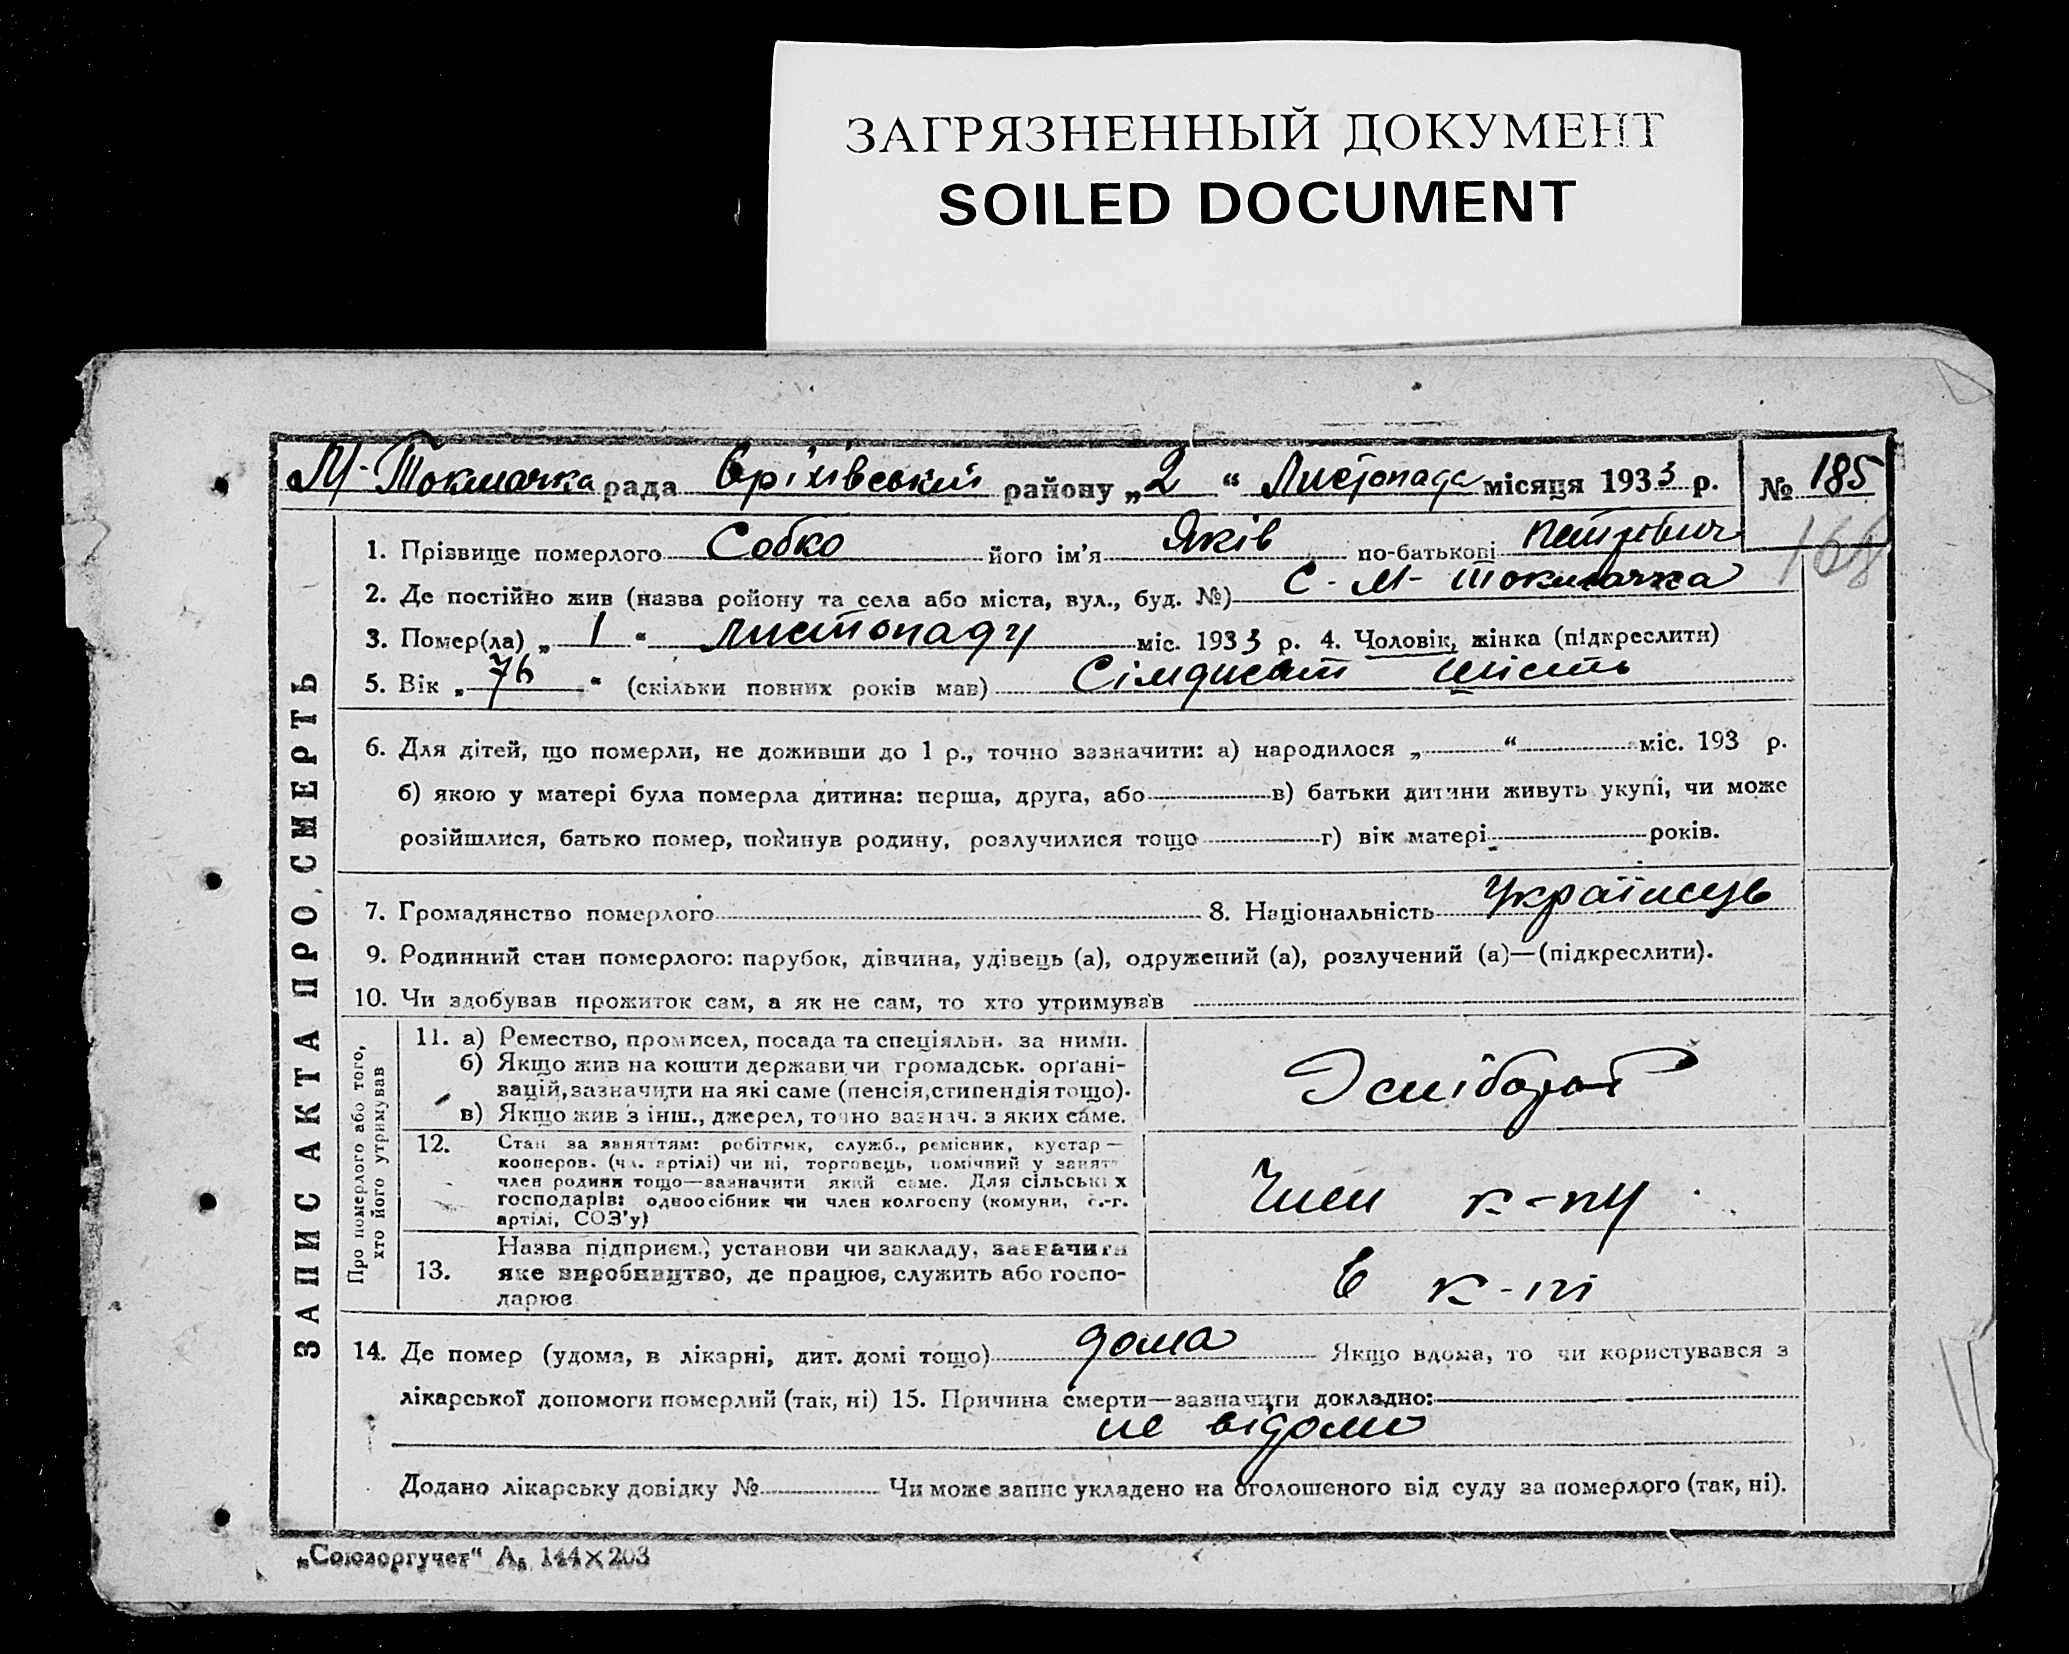 ЗАГРЯЗНЕННЫЙ ДОКУМЕНТ
SOILED DOCUMENT
М-Токмачка рада Оріхівський району „2“ Листопада місяця 1933 р. № 185
168
ЗАПИС АКТА ПРО СМЕРТЬ
1. Прізвище померлого Собко його ім'я Яків по-батькові Петрович
2. Де постійно жив (назва ройону та села або міста, вул., буд. №) С-М-Токмачка
3. Помер(ла) „1“ листопаду міс. 1933 р. 4. Чоловік, жінка (підкреслити)
5. Вік „76“ (скільки повних років мав) Сімдисят шість
6. Для дітей, що померли, не доживши до 1 р., точно зазначити: а) народилося „ “ міс. 193 р.
б) якою у матері була померла дитина: перша, друга, або в) батьки дитини живуть укупі, чи може
розійшлися, батько помер, покинув родину, розлучилися тощо г) вік матері років.
7. Громадянство померлого 8. Національність Українець
9. Родинний стан померлого: парубок, дівчина, удівець (а), одружений (а), розлучений (а)—(підкреслити).
10. Чи здобував прожиток сам, а як не сам, то хто утримував
Про померлого або того,
хто його утримував
11. а) Ремество, промисел, посада та спеціяльн. за ними.
б) Якщо жив на кошти держави чи громадськ. органі-
зацій, зазначити на які саме (пенсія, стипендія тощо).
в) Якщо жив з інш., джерел, точно зазнач. з яких саме.
12. Стан за заняттям: робітник, служб., ремісник, кустар—
кооперов. (чл. артілі) чи ні, торговець, помічний у занят.
член родини тощо—зазначити який саме. Для сільських
господарів: одноосібник чи член колгоспу (комуни, с.-г.
артілі, СОЗ'у)
Член к-пу
13. Назва підприєм., установи чи закладу, зазначити
яке виробництво, де працює, служить або госпо-
дарює
В к-пі
14. Де помер (удома, в лікарні, дит. домі тощо) дома Якщо вдома, то чи користувався з
лікарської допомоги померлий (так, ні) 15. Причина смерти—зазначити докладно:
не відомо
Додано лікарську довідку № Чи може запис укладено на оголошеного від суду за померлого (так, ні).
„Союзоргучет“ А₅ 144×203